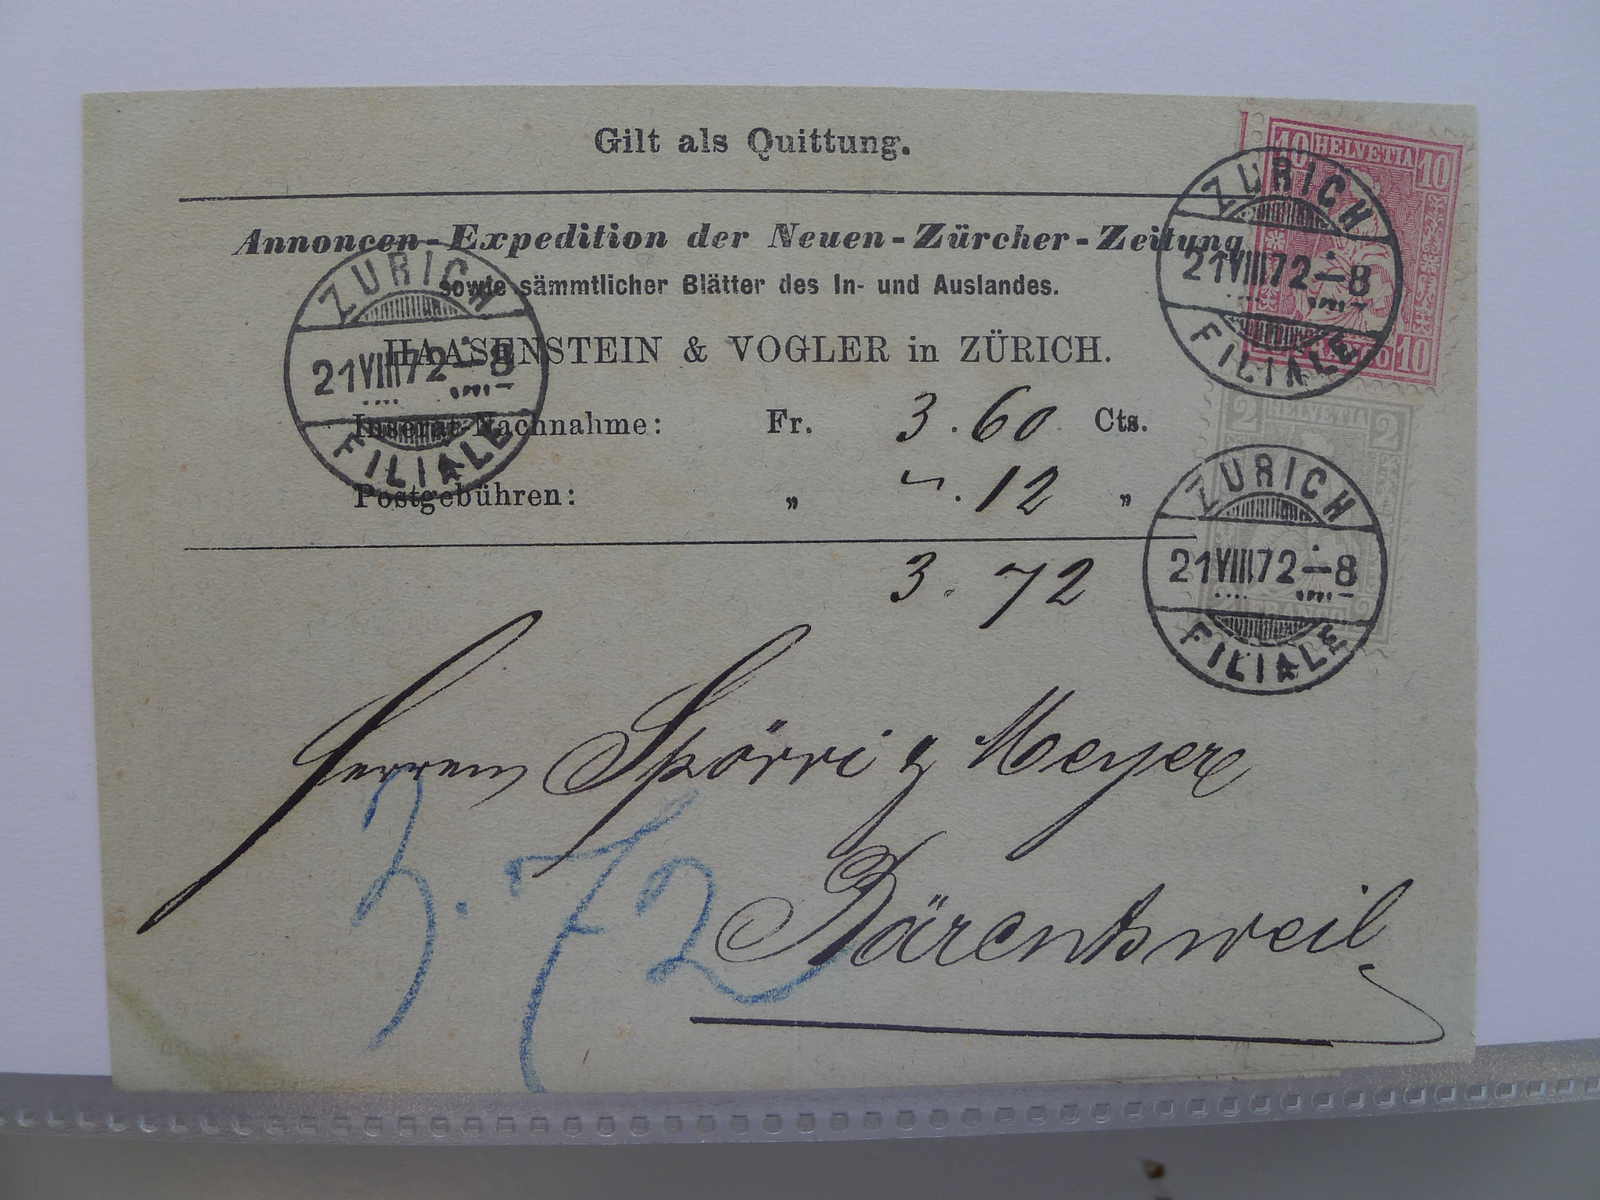 Gilt als Quittung.
Annoncen-Expedition der Neuen-Zürcher-Zeitung
sowie sämmtlicher Blätter des In- und Auslandes.
HAASENSTEIN & VOGLER in ZÜRICH.
Inserat-Nachnahme: Fr. 3.60 Cts.
Postgebühren: „ ~.12 „
3.72
Herren Spörri & Meyer
Bärentsweil
3.72
10 HELVETIA 10
10
2 HELVETIA 2
2 FRANCO 2
ZÜRICH
21 VIII 72 – 8
FILIALE
ZÜRICH
21 VIII 72 – 8
FILIALE
ZÜRICH
21 VIII 72 – 8
FILIALE